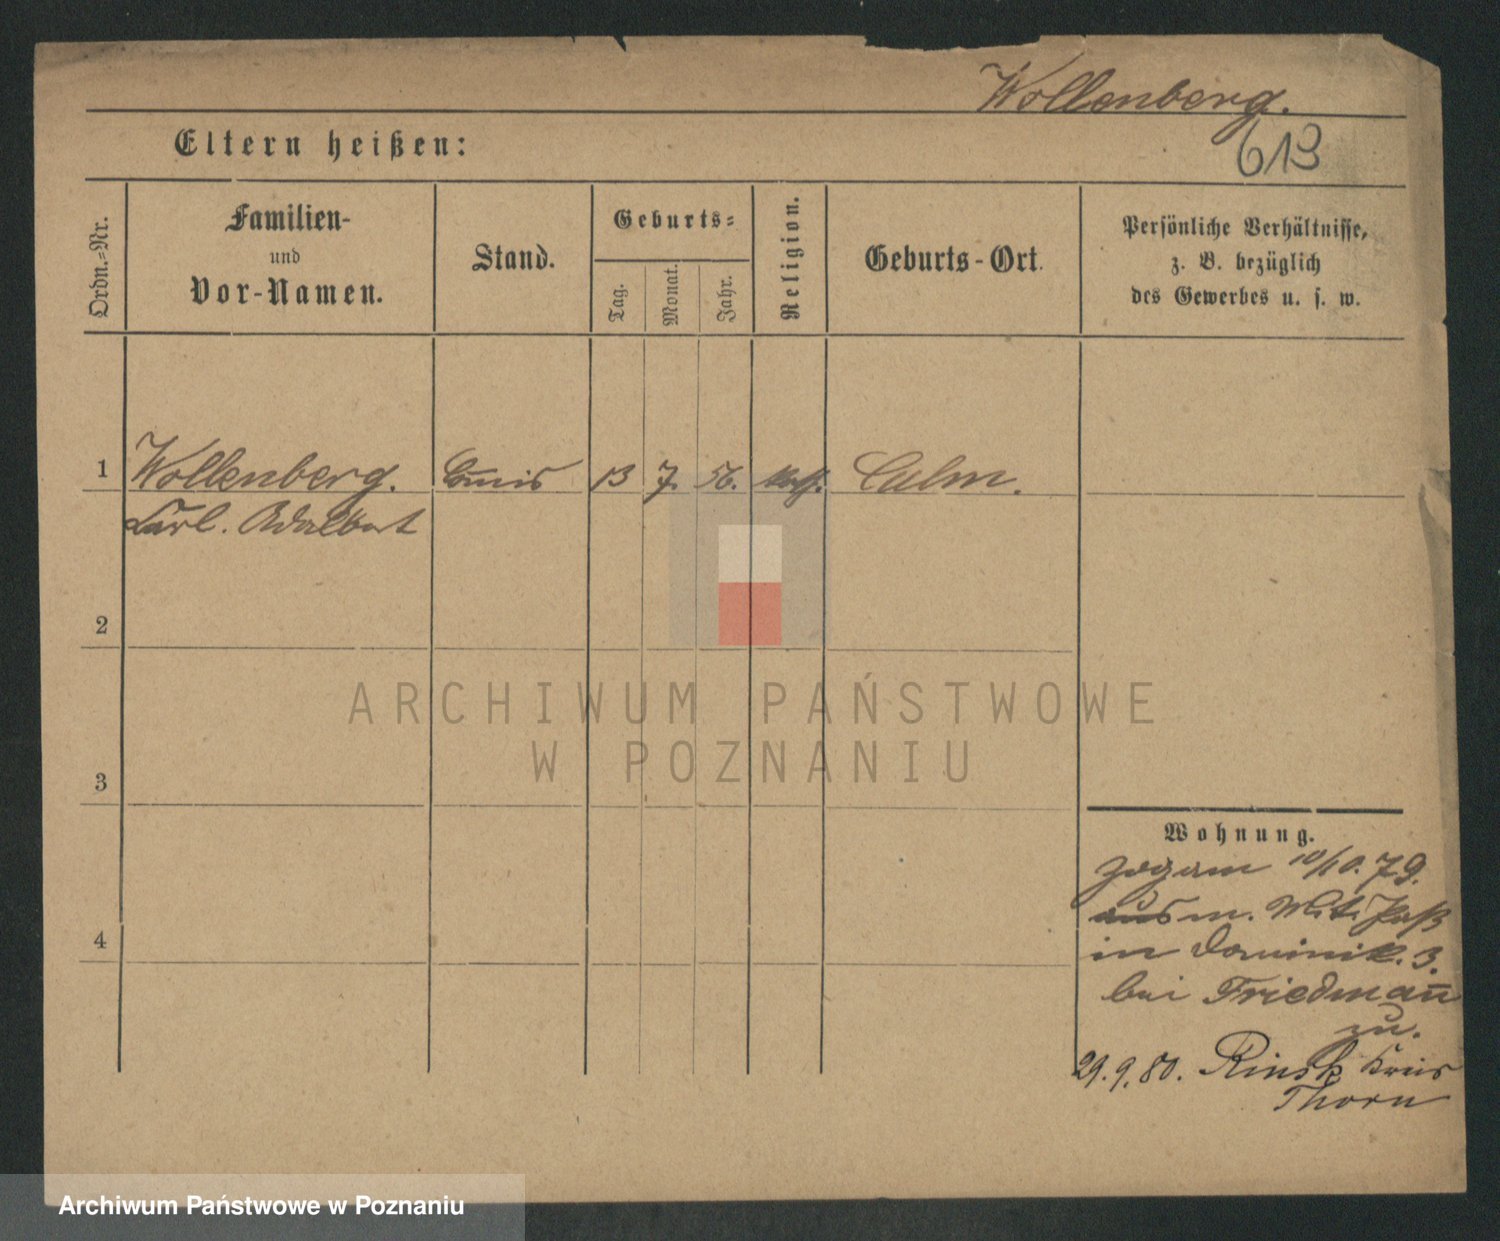 Wollenberg.
613
Eltern heißen:
Ordn.=Nr.
Familien-
und
Vor-Namen.
Stand.
Geburts=
Tag.
Monat.
Jahr.
Religion.
Geburts-Ort.
Persönliche Verhältnisse,
z. B. bezüglich
des Gewerbes u. s. w.
1 Wollenberg. Com̄is 13 7. 56. kath. Culm.
Carl. Adalbert
2
3
4
Wohnung.
zog am 10/10. 79.
aus m. Paß
in Dominik. 3.
bei Friedman̄
zu.
29.9.80. Rinsk Kreis
Thorn
ARCHIWUM PAŃSTWOWE
W POZNANIU
Archiwum Państwowe w Poznaniu